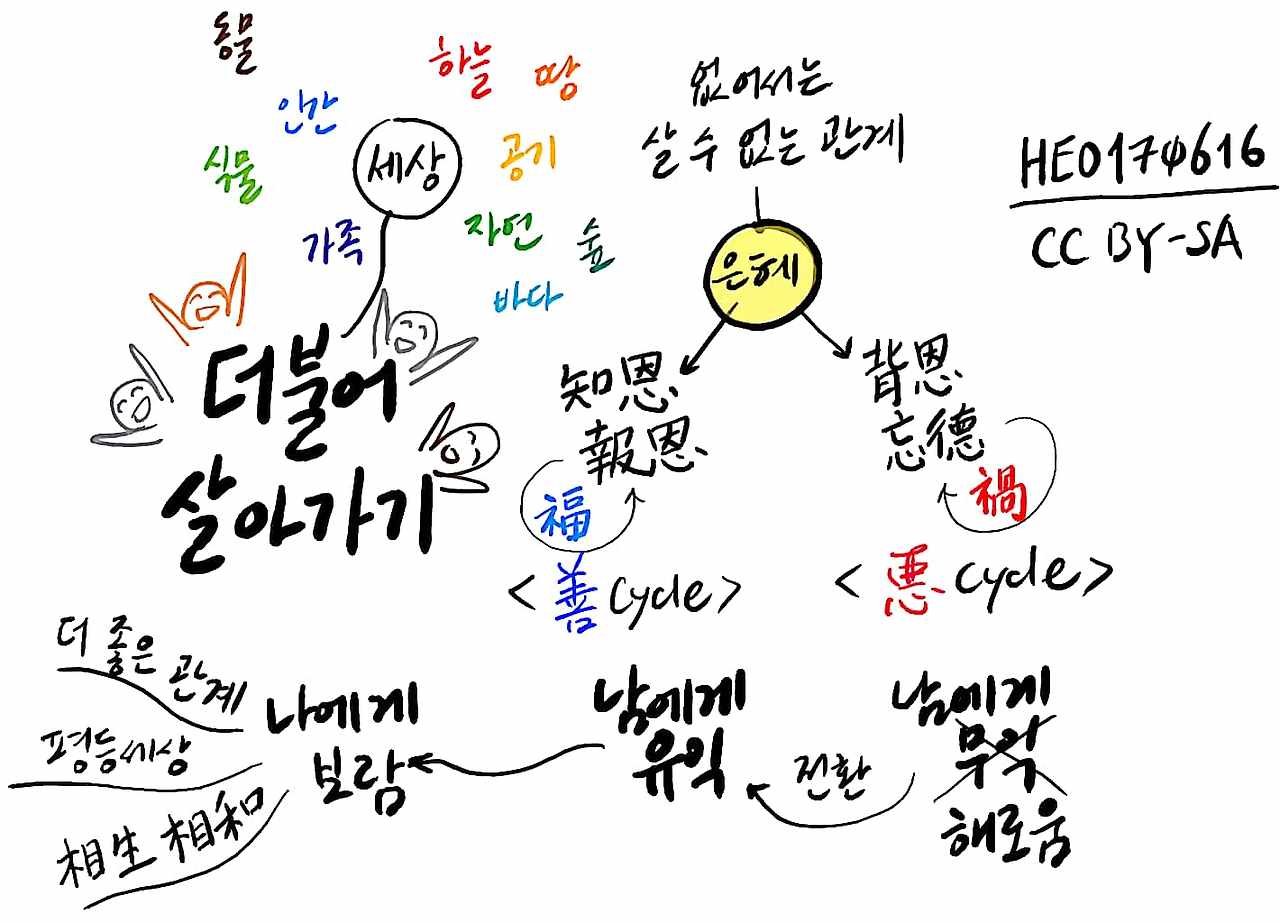 동물
하늘
땅
인간
세상
공기
식물
가족
자연
숲
바다
더불어
살아가기
없어서는
살 수 없는 관계
은혜
知恩
報恩
福
<善 cycle>
背恩
忘德
禍
<悪 cycle>
HEO174616
CC BY-SA
남에게
무익
해로움
전환
남에게
유익
나에게
보람
더 좋은 관계
평등세상
相生 相和